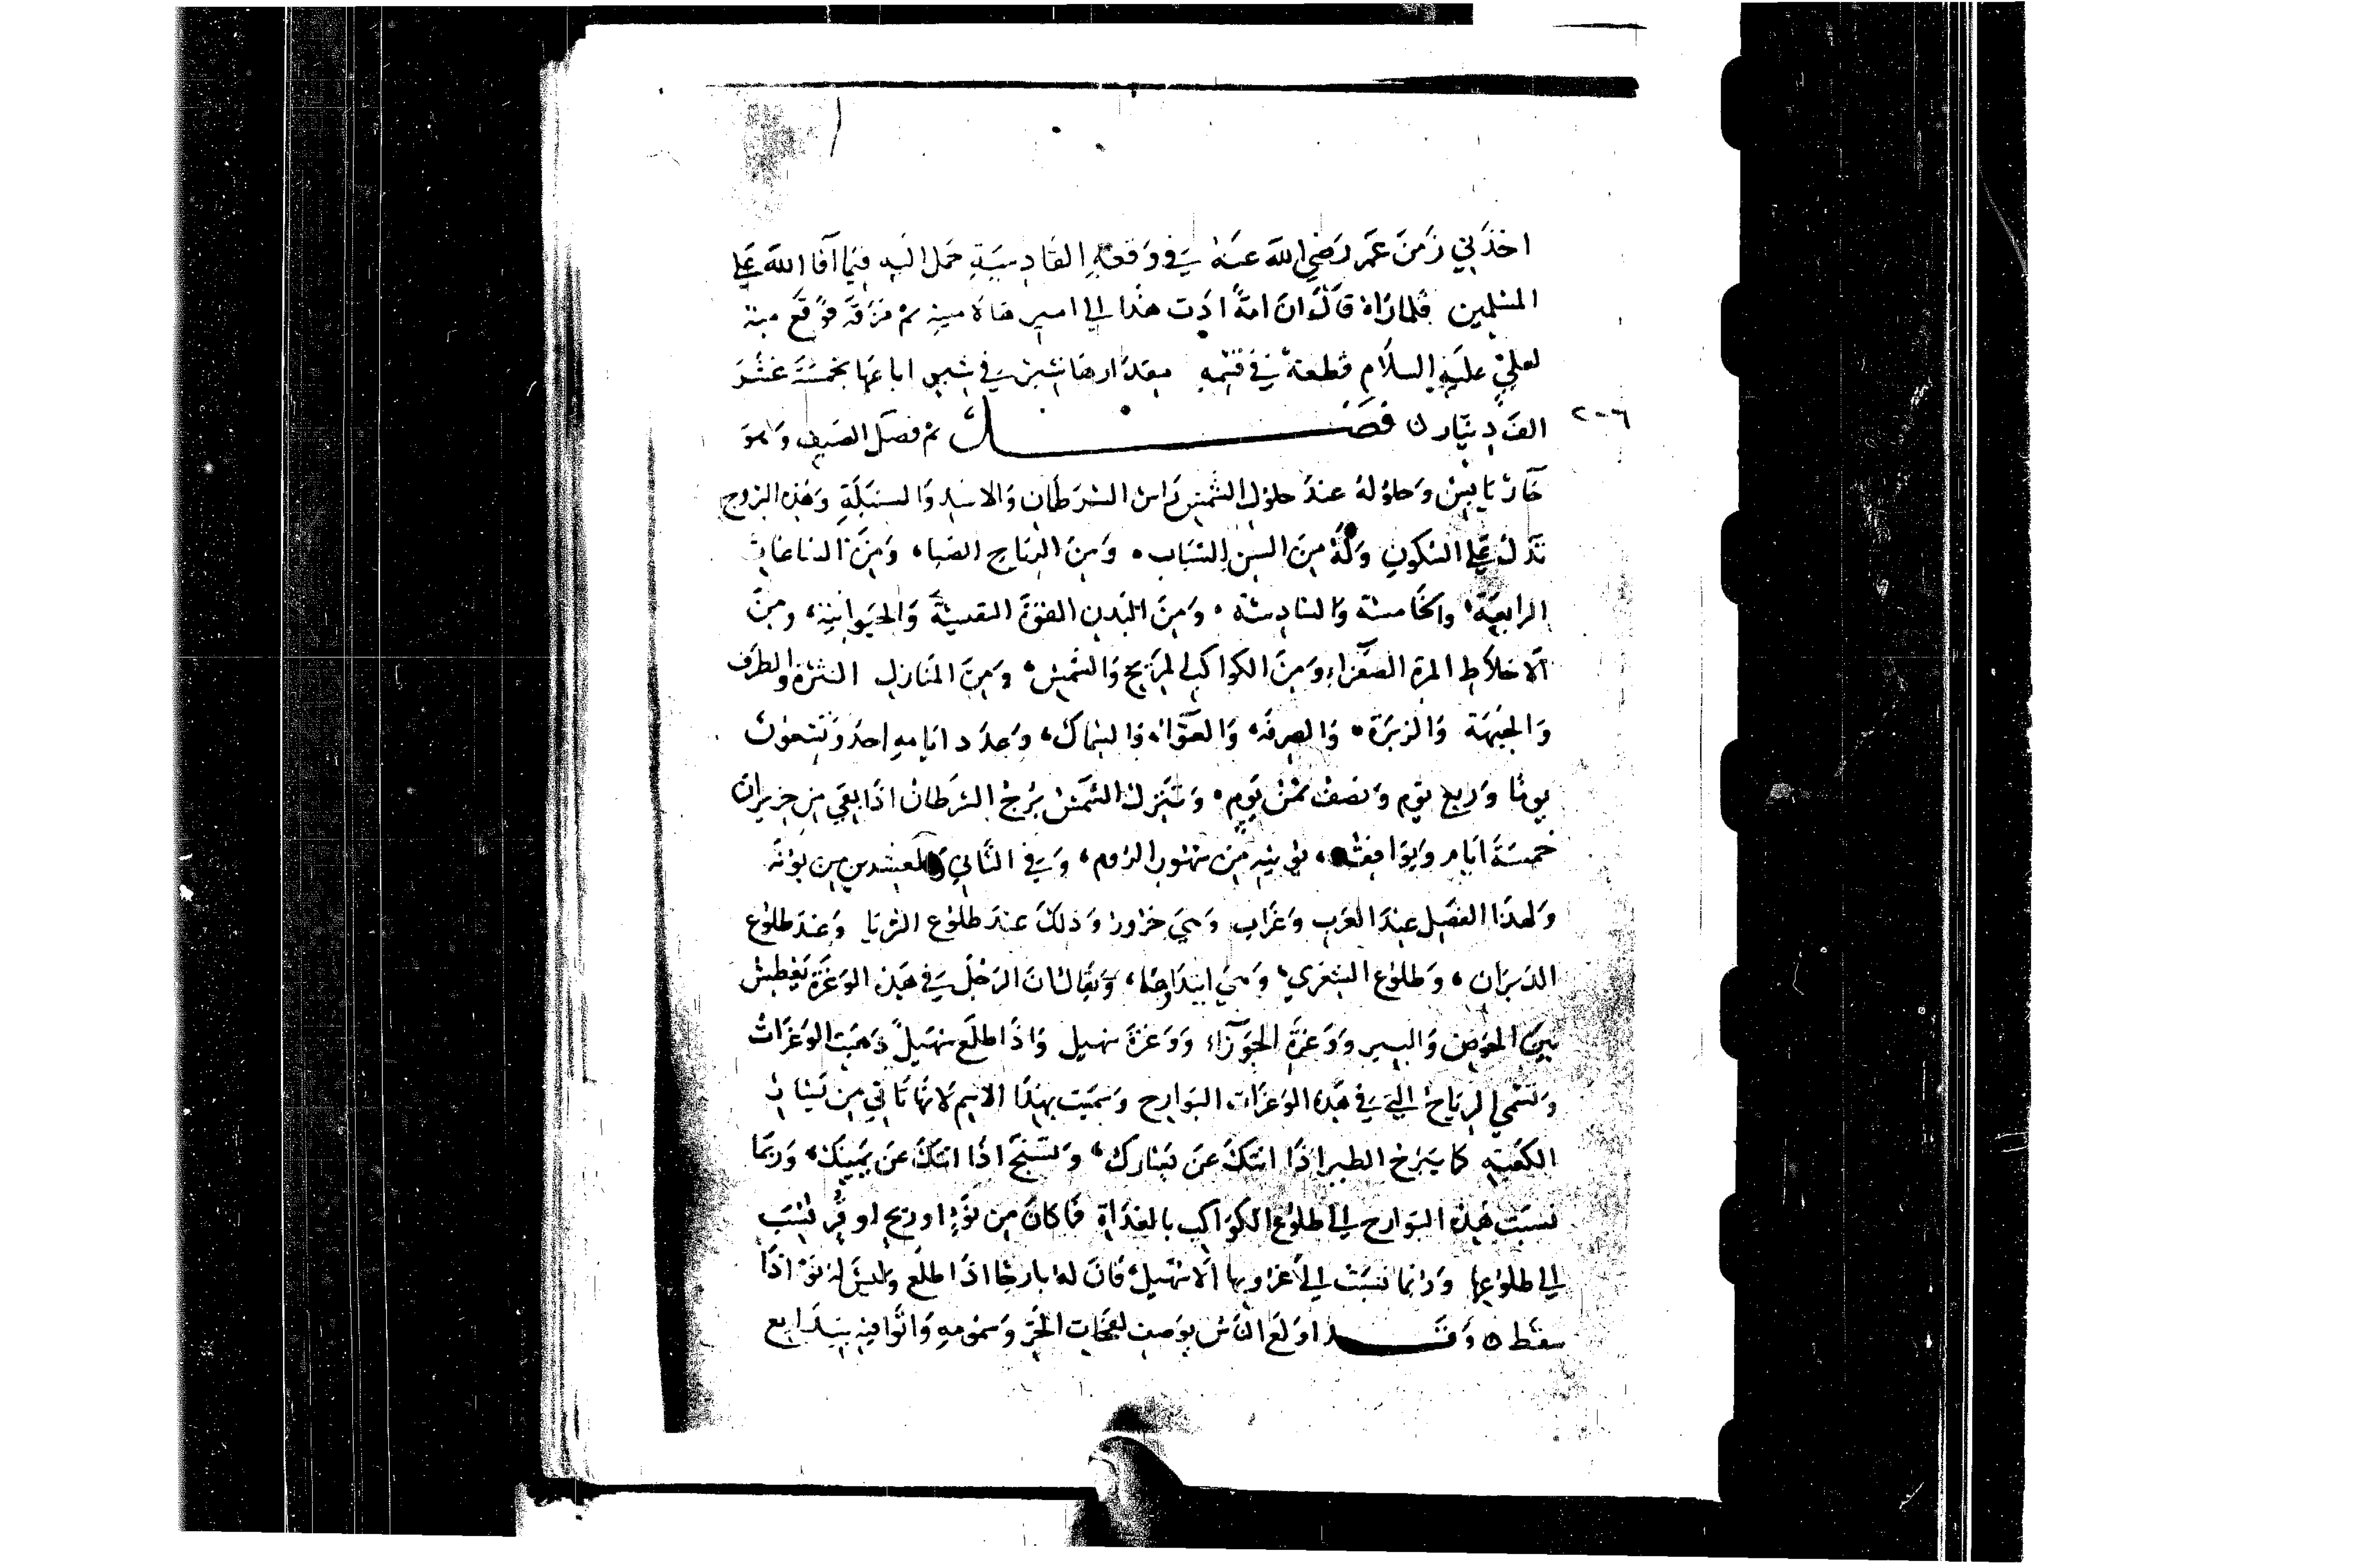 اخذ في زمن عمر رضي الله عنه في وقعة القادسية حمل اليه فيما آفا الله على
المسلمين فلما رآه قال ان امة ادت هذا الى اميرها لامينة ثم مزقه فوقع منه
لعلي عليه السلام قطعة في قسمه مقدارها شبر في شبر اباعها بخمسة عشر
الف دينار ن فصل ثم فصل الصيف وهو
٢٠٦
حار يابس وحلوله عند حلول الشمس راس السرطان والاسد والسنبلة وهذه البروج
تدل على السكون وله من السن الشباب ومن الرياح الصبا، ومن الساعات
الرابعة والخامسة والسادسة، ومن البدن القوة النفسية والحيوانية، ومن
الاخلاط المرة الصفراء ومن الكواكب المريخ والشمس، ومن المنازل النثرة والطرف
والجبهة والزبرة والصرفة، والعواء والسماك، وعدد ايامه احد وتسعون
يوما وربع يوم ونصف ثمن يوم، وتنزل الشمس برج السرطان اذا بقي من حزيران
خمسة ايام ويوافقه، يونيه من شهور الروم، وفي الثاني والعشرين من بونه
ولهذا الفصل عند العرب وغرات وهي حرور وذلك عند طلوع الثريا وعند طلوع
الدبران، وطلوع الشعرى، وهي ابتداوها، ويقال ان الرجل في هذه الوغرة يعطش
بين الحوض والبير ووغرة الجوزاء ووغرة سهيل واذا طلع سهيل ذهبت الوغرات
وتسمى الرياح التي في هذه الوغرات البوارح وسميت بهذا الاسم لانها تاتي من يسار
الكعبة كما يبرح الطير اذا اتتك عن يسارك، وتسنح اذا اتتك عن يمينك، وربما
نسبت هذه البوارح الى طلوع الكواكب بالغداة فما كان من نوء او ريح او قر نسب
الى طلوعها وربما نسبت الى غروبها الا سهيل فان له بارحا اذا طلع وليس له نوء اذا
سقط ن وقد اولع الناس بوصف لفحات الحر وسمومه واتوا فيه ببدايع